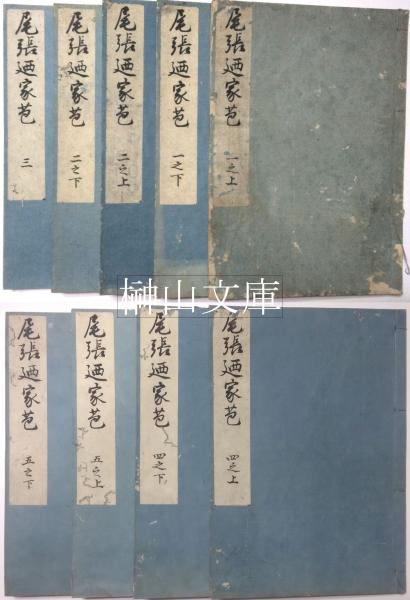 尾張廼家苞 一之上
尾張廼家苞 一之下
尾張廼家苞 二之上
尾張廼家苞 二之下
尾張廼家苞 三
榊山文庫
尾張廼家苞 四之上
尾張廼家苞 四之下
尾張廼家苞 五之上
尾張廼家苞 五之下